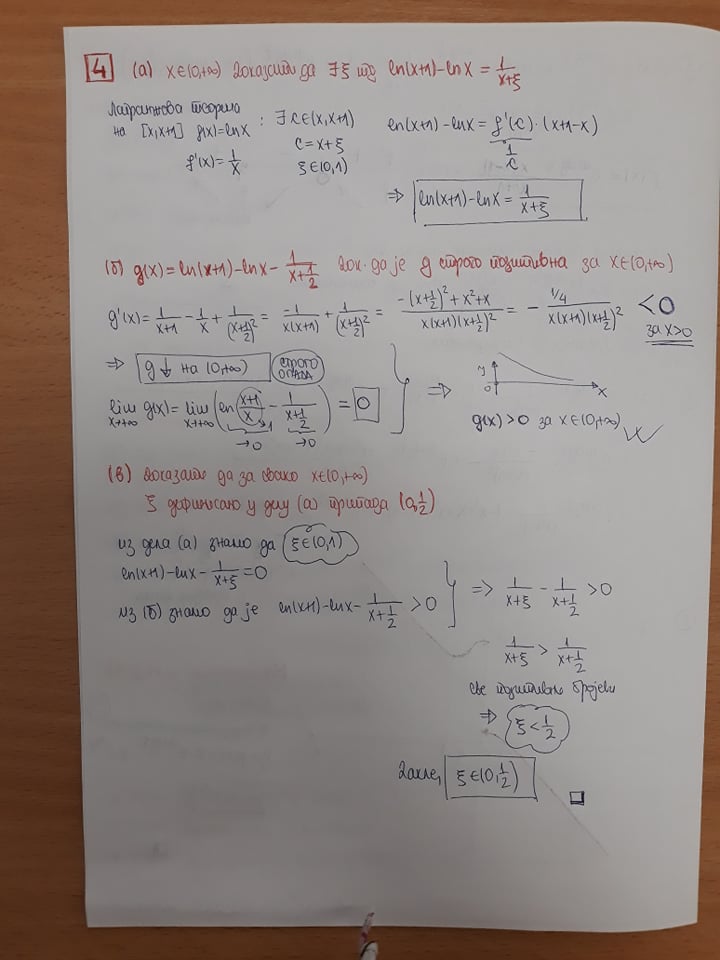 4 (а) x∈(0,+∞) доказати да ∃ξ тд ln(x+1)-lnx = 1/(x+ξ)
Лагранжова теорема : ∃c∈(x,x+1) ln(x+1)-lnx = f'(c)·(x+1-x)
на [x,x+1] f(x)=lnx c=x+ξ 1/c
f'(x)=1/x ξ∈(0,1)
⇒ ln(x+1)-lnx = 1/(x+ξ)
(б) g(x)=ln(x+1)-lnx - 1/(x+1/2) док. да је g строго позитивна за x∈(0,+∞)
g'(x) = 1/(x+1) - 1/x + 1/(x+1/2)² = -1/(x(x+1)) + 1/(x+1/2)² = (-(x+1/2)²+x²+x)/(x(x+1)(x+1/2)²) = - (1/4)/(x(x+1)(x+1/2)²) <0
за x>0
⇒ g↓ на (0,+∞) строго опада
lim x→+∞ g(x) = lim x→+∞ (ln (x+1)/x - 1/(x+1/2)) = 0 ⇒ y 0 x
→1
→0 →0
g(x)>0 за x∈(0,+∞)
(в) доказати да за свако x∈(0,+∞)
ξ дефинисано у делу (а) припада (0,1/2)
из дела (а) знамо да ξ∈(0,1)
ln(x+1)-lnx - 1/(x+ξ) = 0
из (б) знамо да је ln(x+1)-lnx - 1/(x+1/2) > 0 ⇒ 1/(x+ξ) - 1/(x+1/2) > 0
1/(x+ξ) > 1/(x+1/2)
све позитивни бројеви
⇒ ξ < 1/2
Дакле, ξ∈(0,1/2) □